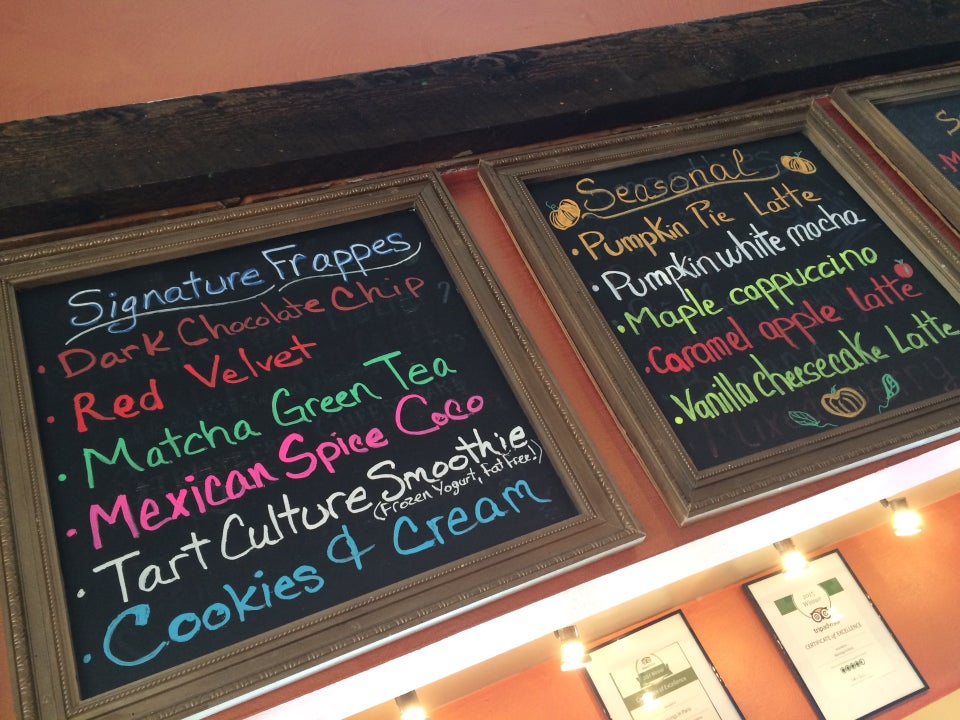 Signature Frappes
• Dark Chocolate Chip
• Red Velvet
• Matcha Green Tea
• Mexican Spice Coco
• Tart Culture Smoothie
(Frozen Yogurt, Fat Free!)
• Cookies & Cream
Seasonal
• Pumpkin Pie Latte
• Pumpkin white mocha
• Maple cappuccino
• Caramel apple latte
• Vanilla cheesecake Latte
S
M
of Excellence
2015
Winner
tripadvisor
CERTIFICATE of EXCELLENCE